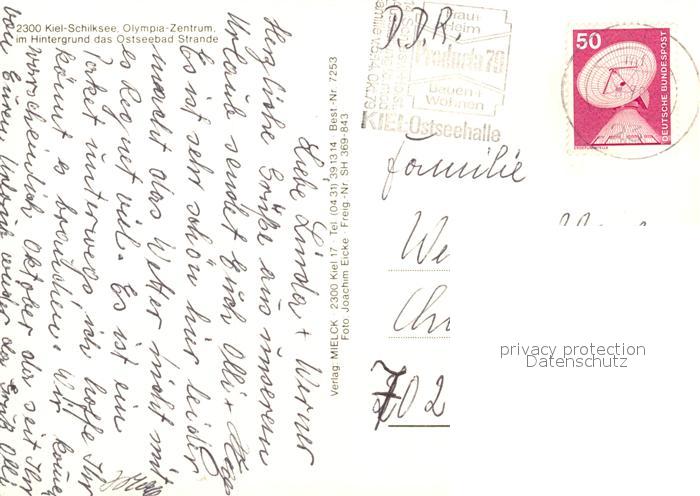 2300 Kiel-Schilksee, Olympia-Zentrum,
im Hintergrund das Ostseebad Strande
Liebe Linda + Werner
Herzliche Grüße aus unserem
Urlaub sendet Euch Olli +
Es ist sehr schön hier leider
macht das Wetter nicht mit
es Regnet viel. Es ist ein
Paket unterwegs ich hoffe Ihr
könnt es brauchen. Wir
warscheinlich Oktober da seit Ihr
von Euren Urlaub wieder da Gruß Olli
Verlag: MIELCK · 2300 Kiel 17 · Tel. (04 31) 39 13 14 · Best.-Nr. 7253
Foto Joachim Eicke · Freig.-Nr. SH 369-843
D.D.R.
Traut
Heim
Producta 79
Bauen +
Wohnen
KIEL Ostseehalle
50
DEUTSCHE BUNDESPOST
ERDEFUNKSTELLE
Familie
We
Chr
702
privacy protection
Datenschutz